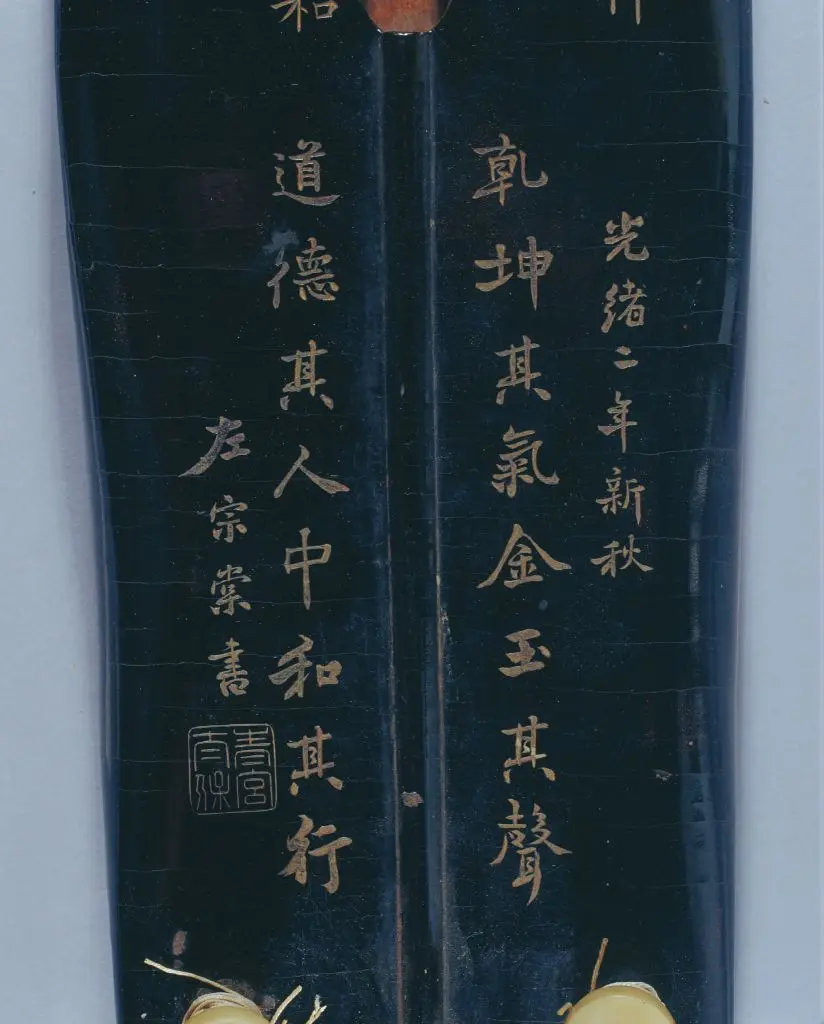 光緒二年新秋
乹坤其氣金玉其聲
道德其人中和其行
左宗棠書
青宮太保